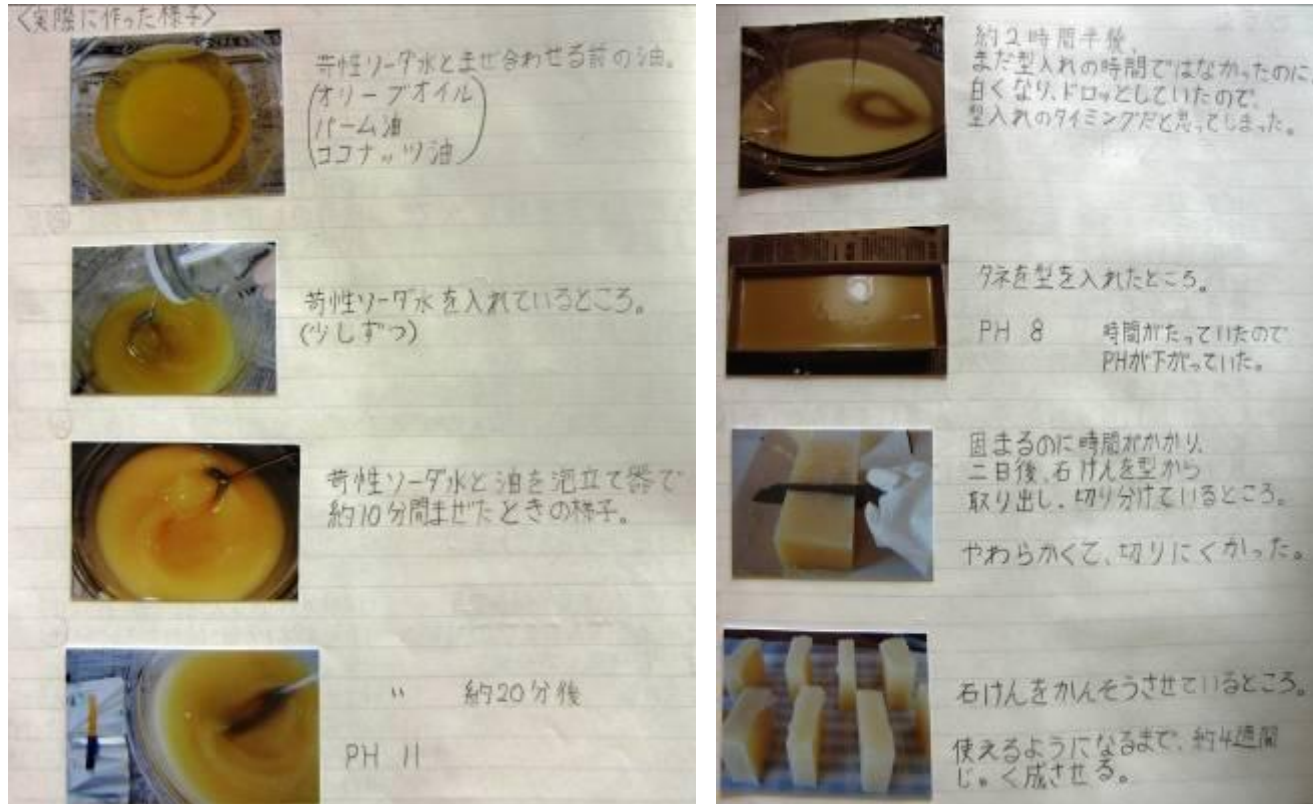 〈実際に作った様子〉
苛性ソーダ水とまぜ合わせる前の油。
(オリーブオイル
パーム油
ココナッツ油)
苛性ソーダ水を入れているところ。
(少しずつ)
苛性ソーダ水と油を泡立て器で
約10分間まぜたときの様子。
〃 約20分後
PH 11
約2時間半後、
まだ型入れの時間ではなかったのに、
白くなり、ドロッとしていたので、
型入れのタイミングだと思ってしまった。
タネを型を入れたところ。
PH 8 時間がたっていたので
PHが下がっていた。
固まるのに時間がかかり、
二日後、石けんを型から
取り出し、切り分けているところ。
やわらかくて、切りにくかった。
石けんをかんそうさせているところ。
使えるようになるまで、約4週間
じゅく成させる。